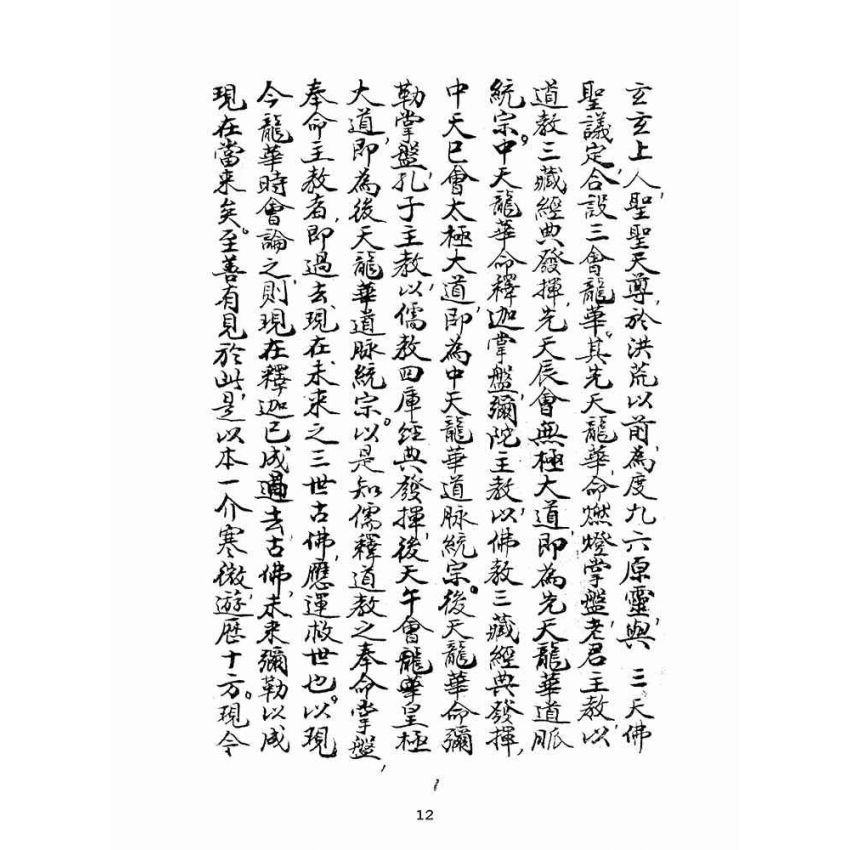 玄玄上人,聖聖天尊,於洪荒以前,為度九六原靈,與 三天佛
聖議定,合設三會龍華。其先天龍華,命燃燈掌盤,老君主教,以
道教三藏經典發揮,先天辰會無極大道,即為先天龍華道脈
統宗。中天龍華命釋迦掌盤,彌陀主教,以佛教三藏經典發揮,
中天巳會太極大道,即為中天龍華道脈統宗。後天龍華命彌
勒掌盤,孔子主教,以儒教四庫經典發揮,後天午會龍華皇極
大道,即為後天龍華道脈統宗。以是知儒釋道教之奉命掌盤,
奉命主教者,即過去現在未來之三世古佛,應運救世也。以現
今龍華時會論之,則現在釋迦已成過去古佛,未來彌勒以成
現在當來矣。至善有見於此,是以本一介寒微,遊歷十方。現今
12